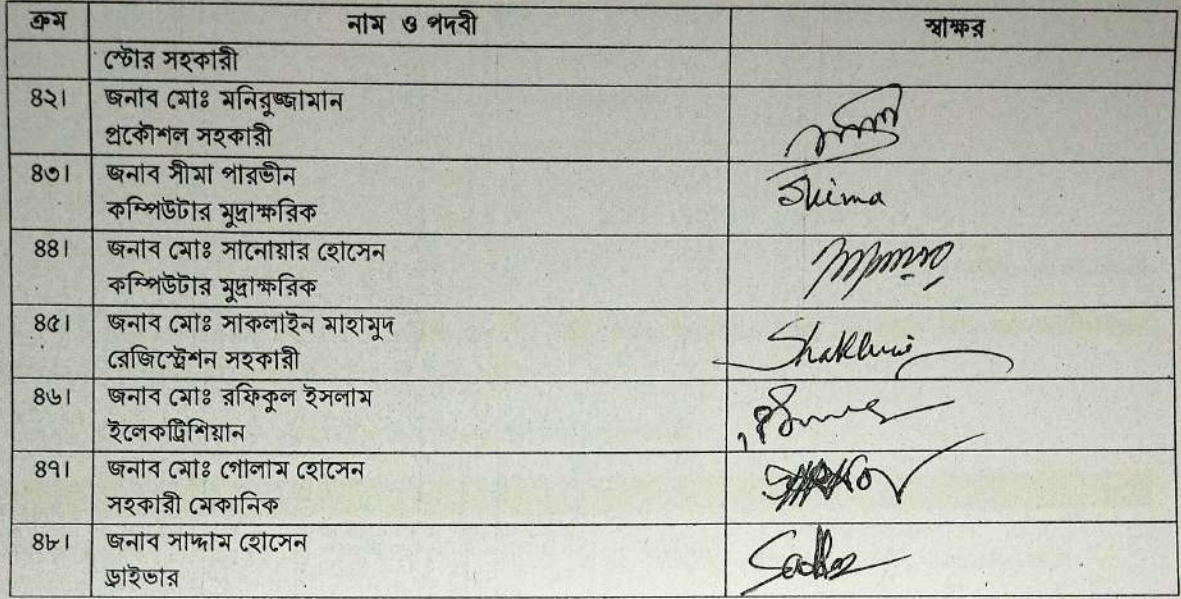 ক্রম নাম ও পদবী স্বাক্ষর
স্টোর সহকারী
৪২। জনাব মোঃ মনিরুজ্জামান
প্রকৌশল সহকারী
৪৩। জনাব সীমা পারভীন
কম্পিউটার মুদ্রাক্ষরিক
Shima
৪৪। জনাব মোঃ সানোয়ার হোসেন
কম্পিউটার মুদ্রাক্ষরিক
৪৫। জনাব মোঃ সাকলাইন মাহামুদ
রেজিস্ট্রেশন সহকারী
৪৬। জনাব মোঃ রফিকুল ইসলাম
ইলেকট্রিশিয়ান
৪৭। জনাব মোঃ গোলাম হোসেন
সহকারী মেকানিক
৪৮। জনাব সাদ্দাম হোসেন
ড্রাইভার